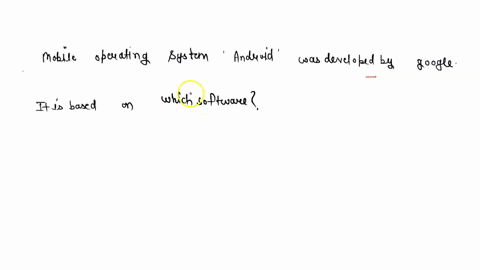 Mobile operating system 'Android' was developed by google.
It is based on which software?